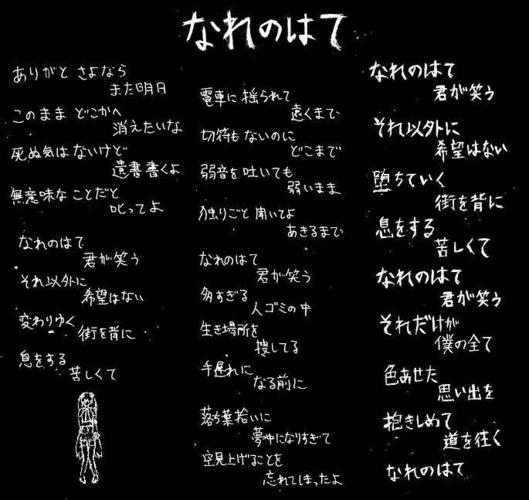 なれのはて
ありがと さよなら
また明日
このまま どこかへ
消えたいな
死ぬ気はないけど
遺書書くよ
無意味なことだと
叱ってよ
なれのはて
君が笑う
それ以外に
希望はない
変わりゆく
街を背に
息をする
苦しくて
電車に揺られて
遠くまで
切符もないのに
どこまで
弱音を吐いても
弱いまま
独りごと聞いてよ
あきるまで
なれのはて
君が笑う
多すぎる
人ゴミの中
生き場所を
捜してる
手遅れに
なる前に
落ち葉拾いに
夢中になりすぎて
空見上げることを
忘れてしまったよ
なれのはて
君が笑う
それ以外に
希望はない
堕ちていく
街を背に
息をする
苦しくて
なれのはて
君が笑う
それだけが
僕の全て
色あせた
思い出を
抱きしめて
道を往く
なれのはて